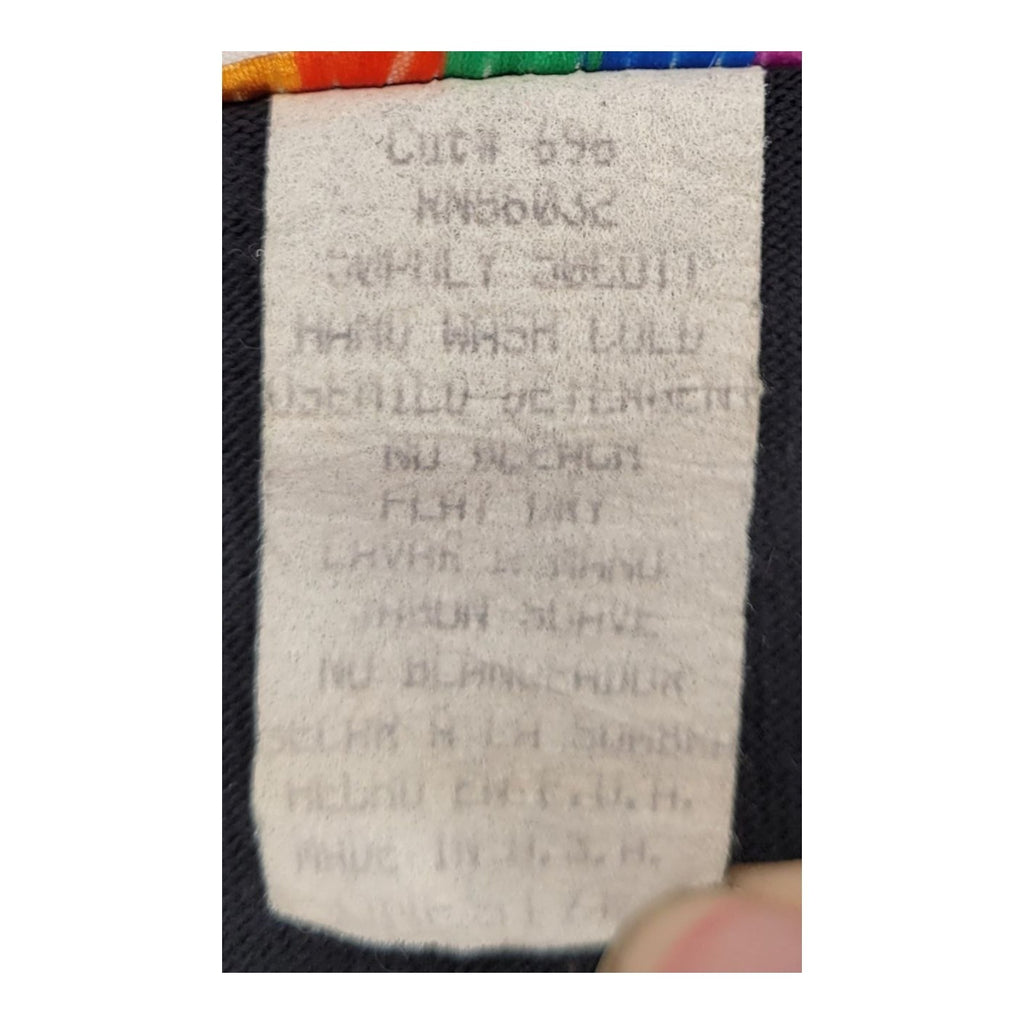 Cut# 696
RN56032
HAND WASH COLD
MILD DETERGENT
NO BLEACH
FLAT DRY
LAVAR A MANO
JABON SUAVE
NO BLANQUEADOR
SECAR A LA SOMBRA
HECHO EN E.U.A.
MADE IN U.S.A.